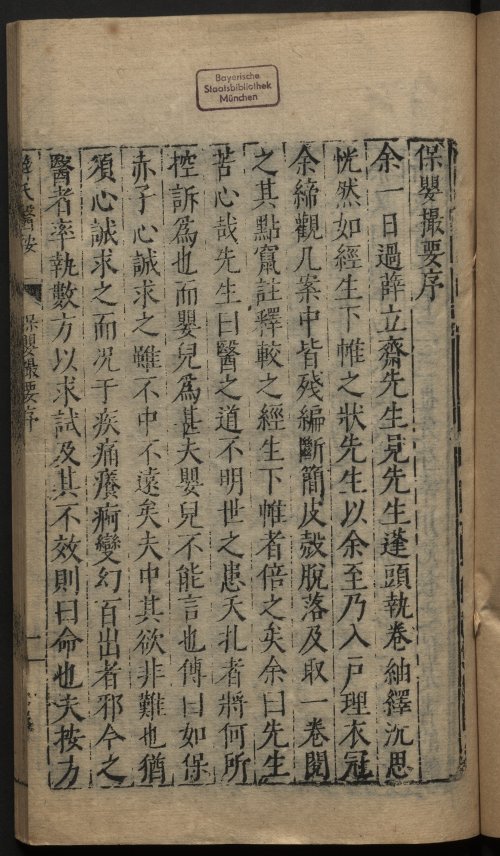 Bayerische
Staatsbibliothek
München
保嬰撮要序
余一日過薛立齋先生見先生蓬頭執卷紬繹沉思
恍然如經生下帷之狀先生以余至乃入戶理衣冠
余締觀几案中皆殘編斷簡皮殼脫落及取一卷閱
之其點竄註釋較之經生下帷者倍之矣余曰先生
苦心哉先生曰醫之道不明世之患夭札者將何所
控訴爲也而嬰兒爲甚夫嬰兒不能言也傳曰如保
赤子心誠求之雖不中不遠矣夫中其欲非難也猶
須心誠求之而况于疾痛癢痾變幻百出者邪今之
醫者率執數方以求試及其不效則曰命也夫按方
薛氏醫按
保嬰撮要序
一